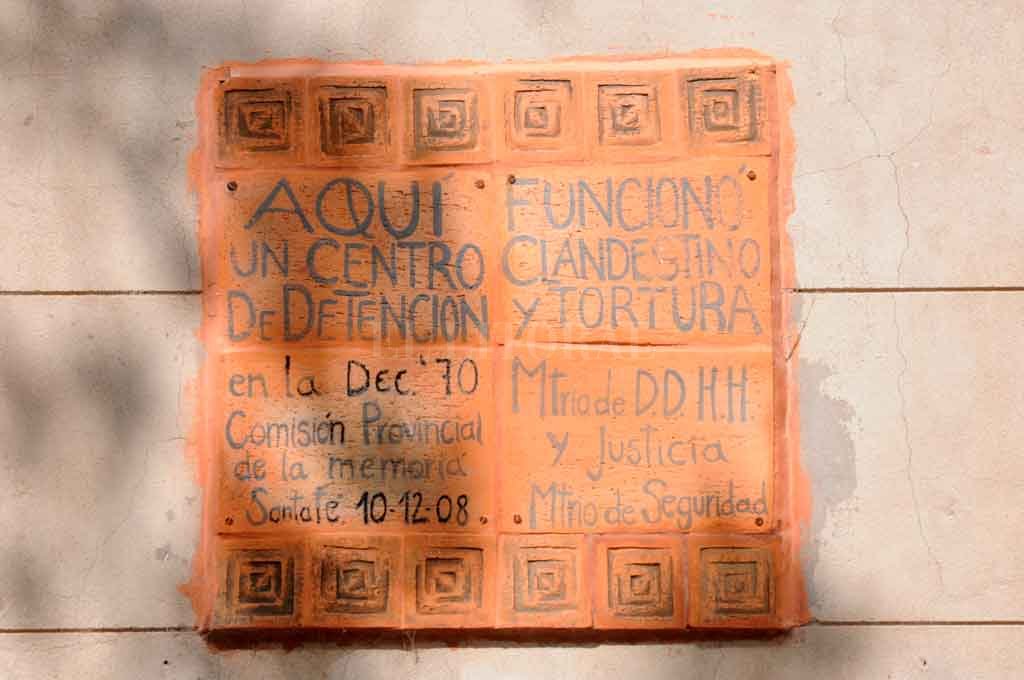 AQUÍ FUNCIONÓ
UN CENTRO CLANDESTINO
DE DETENCIÓN Y TORTURA
en la DEC. '70
Comisión Provincial
de la memoria
Santa Fé 10-12-08
Mtrio de D.D.H.H.
y Justicia
Mtrio de Seguridad